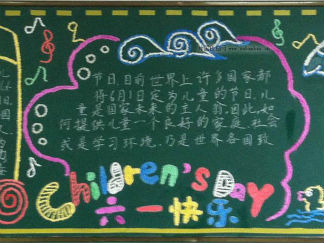 节日日的世界上许多国家都
将6月1日定为儿童的节日,儿
童是国家未来的主人翁,因此,如
何提供儿童一个良好的家庭.社会
或是学习环境.乃是世界各国致
Children's Day
六一快乐